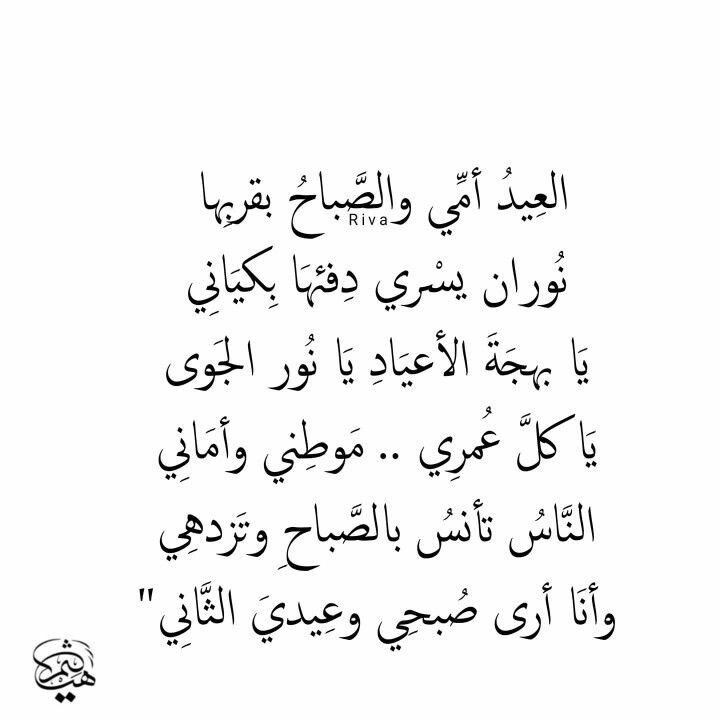 العِيدُ أمِّي والصَّباحُ بقربِها
Riva
نُوران يسْري دِفئهَا بِكيَانِي
يَا بهجَةَ الأعيَادِ يَا نُور الجَوى
يَا كلَّ عُمرِي .. مَوطِني وأمَانِي
النَّاسُ تأنسُ بالصَّباحِ وتَزدهِي
وأنَا أرى صُبحِي وعِيديَ الثَّانِي"